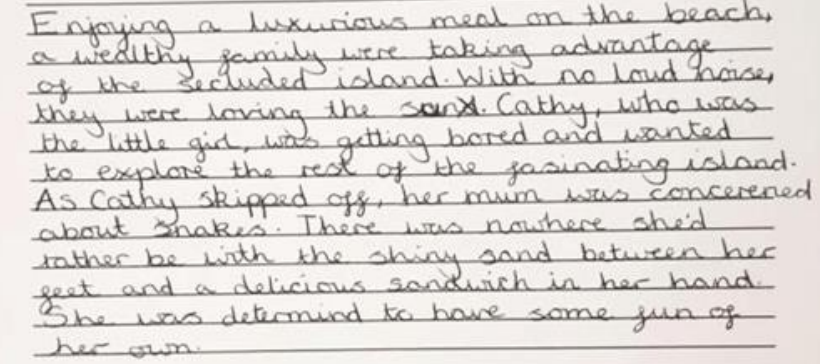 Enjoying a luxurious meal on the beach,
a wealthy family were taking advantage
of the secluded island. With no loud noise,
they were loving the sun. Cathy, who was
the little girl, was getting bored and wanted
to explore the rest of the fasinating island.
As Cathy skipped off, her mum was concerened
about snakes. There was nowhere she'd
rather be with the shiny sand between her
feet and a delicious sandwich in her hand.
She was determind to have some fun of
her own.